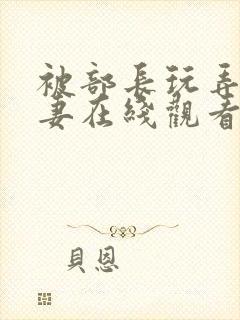 被部長玩弄
妻在綫觀看
貝恩